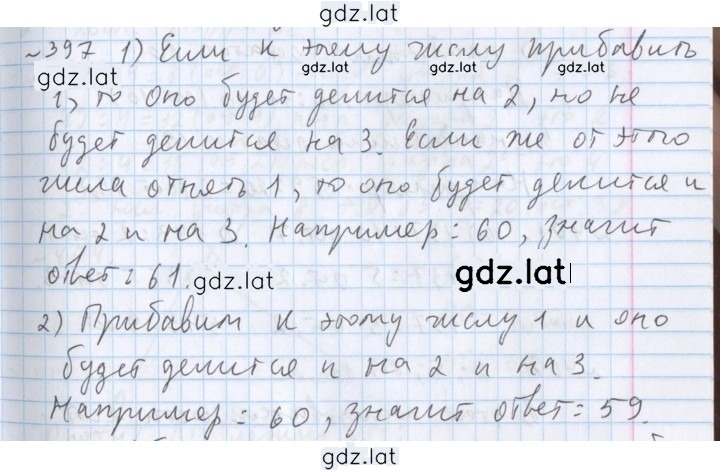 gdz.lat
~397 1) Если к этому числу прибавить
gdz.lat gdz.lat gdz.lat gdz.lat
1, то оно будет делится на 2, но не
будет делится на 3. Если же от этого
числа отнять 1, то оно будет делится и
на 2 и на 3. Например: 60, значит
ответ: 61. gdz.lat gdz.lat
2) Прибавим к этому числу 1 и оно
будет делится и на 2 и на 3.
Например: 60, значит ответ: 59.
gdz.lat